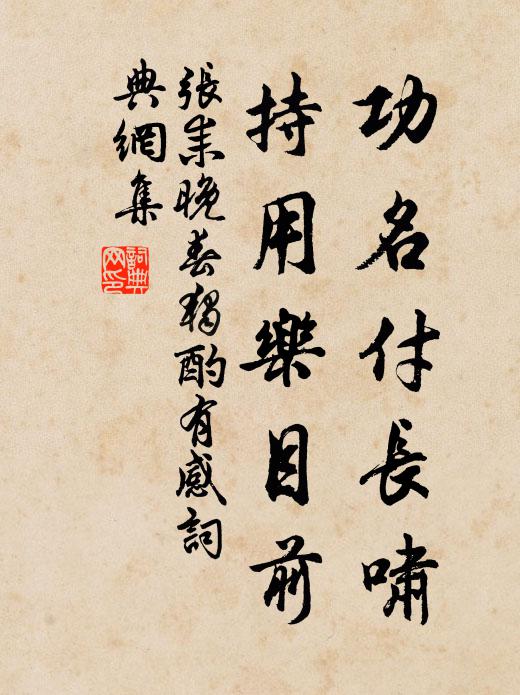 功名付長嘯
持用樂目前
張耒晚春獨酌有感詞
典網集
詞典
网印